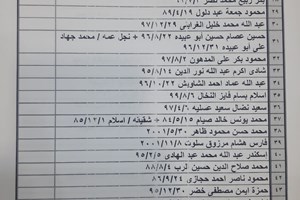 محمود جمعة عيد دلول ٨٩/٤/١٩
عبد الله محمد خليل الغرابلي ٩٧/١٢/٢٩
٣١ حسين عصام حسين أبو عبيده ٩٦/٨/٢٢ + نجل عمه / محمد جهاد
علي أبو عبيده ٩٦/١٢/٣١
محمود بكر علي المدهون ٩٧/٨/٢
شادي اكرم عبد الله نور الدين ٩٥/٨/١٤
عبد الله عماد احمد الشاويش ٩٦/٥/١٠
٣٥ اسلام بسام فايز النخال ٩٩/٨/٦
٣٦ سعيد نضال سعيد عسليه ٩٧/٤/٦
٣٧ محمد يونس خالد صيام ٨٤/٥/١٥ + شقيقه / اسلام ٨٥/١٢/١
٣٨ محمد حسن محمود ظاهر ٢٠٠١/٥/٣٠
٣٩ فارس هشام مرزوق سلوت ٢٠٠١/١١/٨
٤٠ اسكندر عبد الله محمد عبد الهادي ٩٥/٢/٥
٤١ محمد صلاح الدين حسين ٨٨/٤/٦
٤٢ محمود ناصر احمد حجازي ٨٦/٩/٢٤
٤٣ حمزة ايمن مصطفى خضر ٩٥/١٢/٣٠